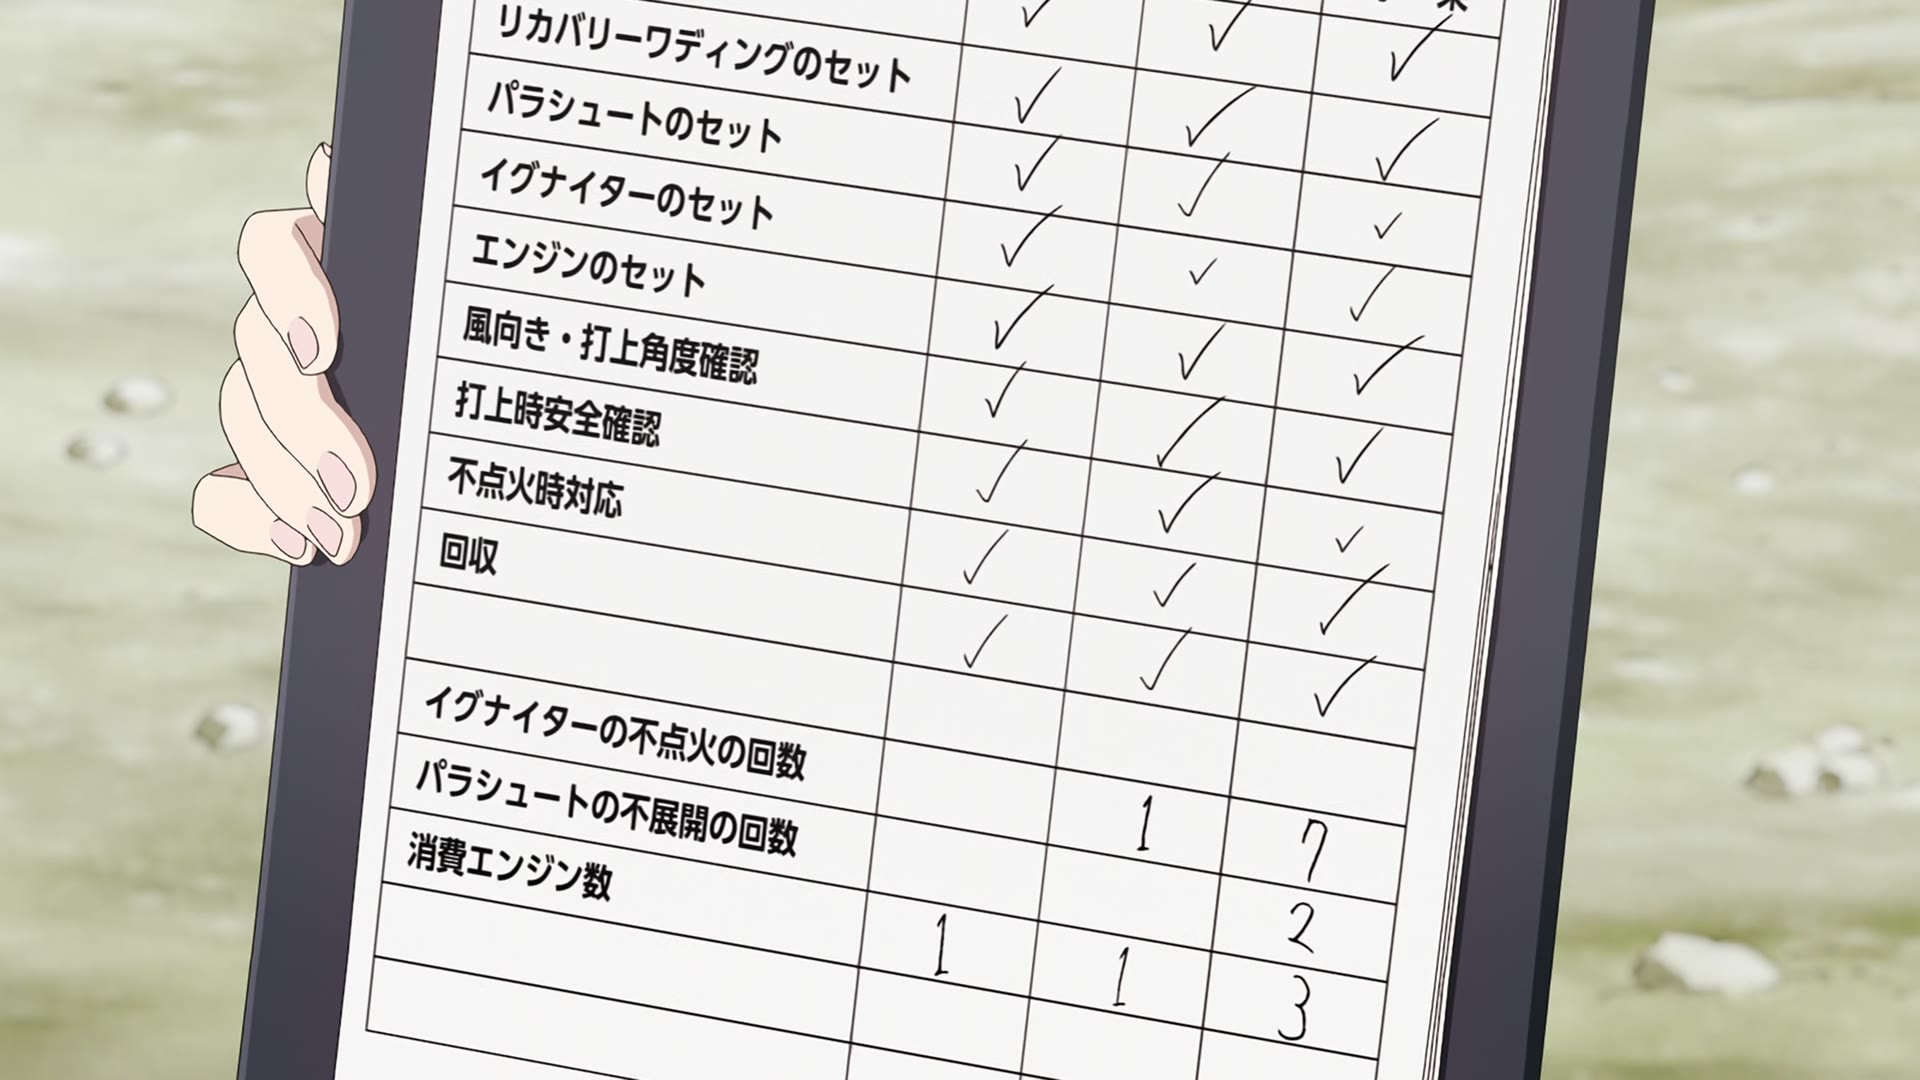 リカバリーワディングのセット ✓ ✓ ✓
パラシュートのセット ✓ ✓ ✓
イグナイターのセット ✓ ✓ ✓
エンジンのセット ✓ ✓ ✓
風向き・打上角度確認 ✓ ✓ ✓
打上時安全確認 ✓ ✓ ✓
不点火時対応 ✓ ✓ ✓
回収 ✓ ✓ ✓
イグナイターの不点火の回数 1 7
パラシュートの不展開の回数 2
消費エンジン数 1 1 3